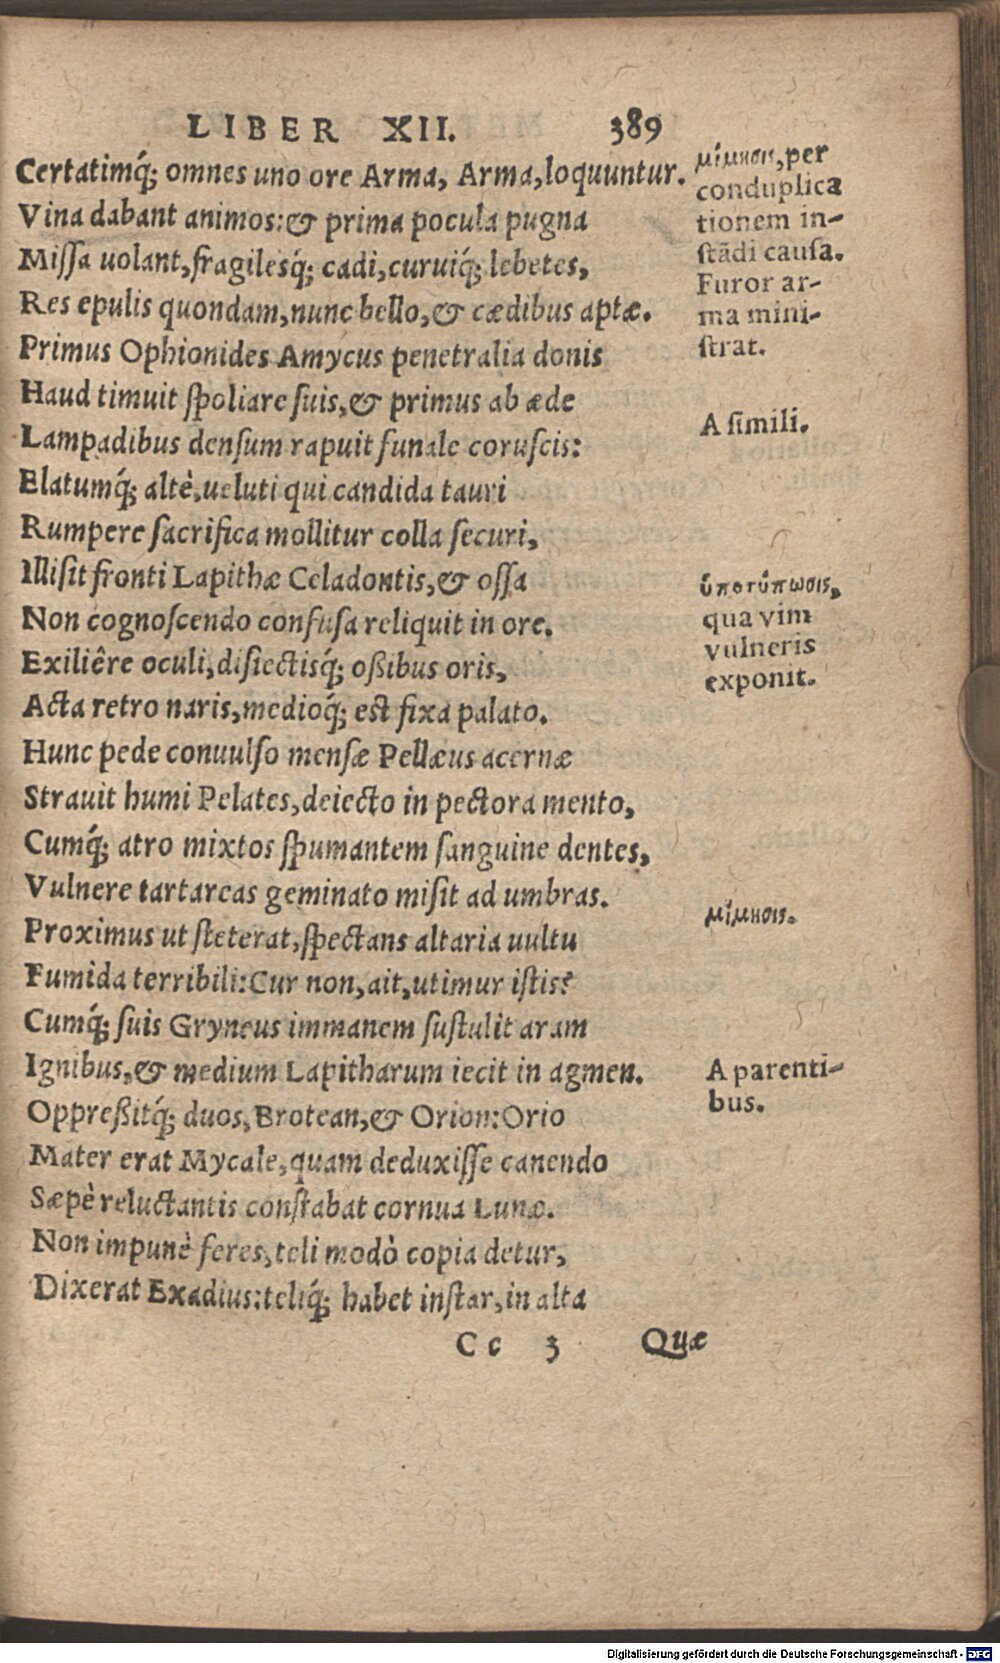 LIBER XII. 389
Certatimq́; omnes uno ore Arma, Arma, loquuntur.
Vina dabant animos: & prima pocula pugna
Missa uolant, fragilesq́; cadi, curuiq́; lebetes,
Res epulis quondam, nunc bello, & cædibus aptæ.
Primus Ophionides Amycus penetralia donis
Haud timuit spoliare suis, & primus ab æde
Lampadibus densum rapuit funale coruscis:
Elatumq́; altè, ueluti qui candida tauri
Rumpere sacrifica mollitur colla securi,
Illisit fronti Lapithæ Celadontis, & ossa
Non cognoscendo confusa reliquit in ore.
Exiliêre oculi, disiectisq́; oßibus oris,
Acta retro naris, medioq́; est fixa palato.
Hunc pede conuulso mensæ Pellæus acernæ
Strauit humi Pelates, deiecto in pectora mento,
Cumq́; atro mixtos spumantem sanguine dentes,
Vulnere tartareas geminato misit ad umbras.
Proximus ut steterat, spectans altaria uultu
Fumida terribili: Cur non, ait, utimur istis?
Cumq́; suis Gryneus immanem sustulit aram
Ignibus, & medium Lapitharum iecit in agmen.
Oppreßitq́; duos, Brotean, & Orion: Orio
Mater erat Mycale, quam deduxisse canendo
Sæpè reluctantis constabat cornua Lunæ.
Non impunè feres, teli modò copia detur,
Dixerat Exadius: teliq́; habet instar, in alta
Cc 3 Quæ
μίμησις, per
conduplica
tionem in-
stādi causa.
Furor ar-
ma mini-
strat.
A simili.
ὑποτύπωσις,
qua vim
vulneris
exponit.
μίμησις.
A parenti-
bus.
Digitalisierung gefördert durch die Deutsche Forschungsgemeinschaft - DFG